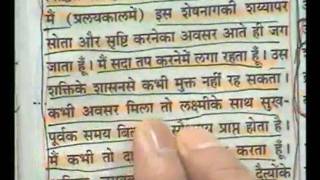 मैं (प्रलयकालमें) इस शेषनागकी शय्यापर
सोता और सृष्टि करनेका अवसर आते ही जग
जाता हूँ। मैं सदा तप करनेमें लगा रहता हूँ। उस
शक्तिके शासनसे कभी मुक्त नहीं रह सकता।
कभी अवसर मिला तो लक्ष्मीके साथ सुख-
पूर्वक समय प्राप्त होता है।
मैं कभी तो करता हूँ।
दैत्योंके